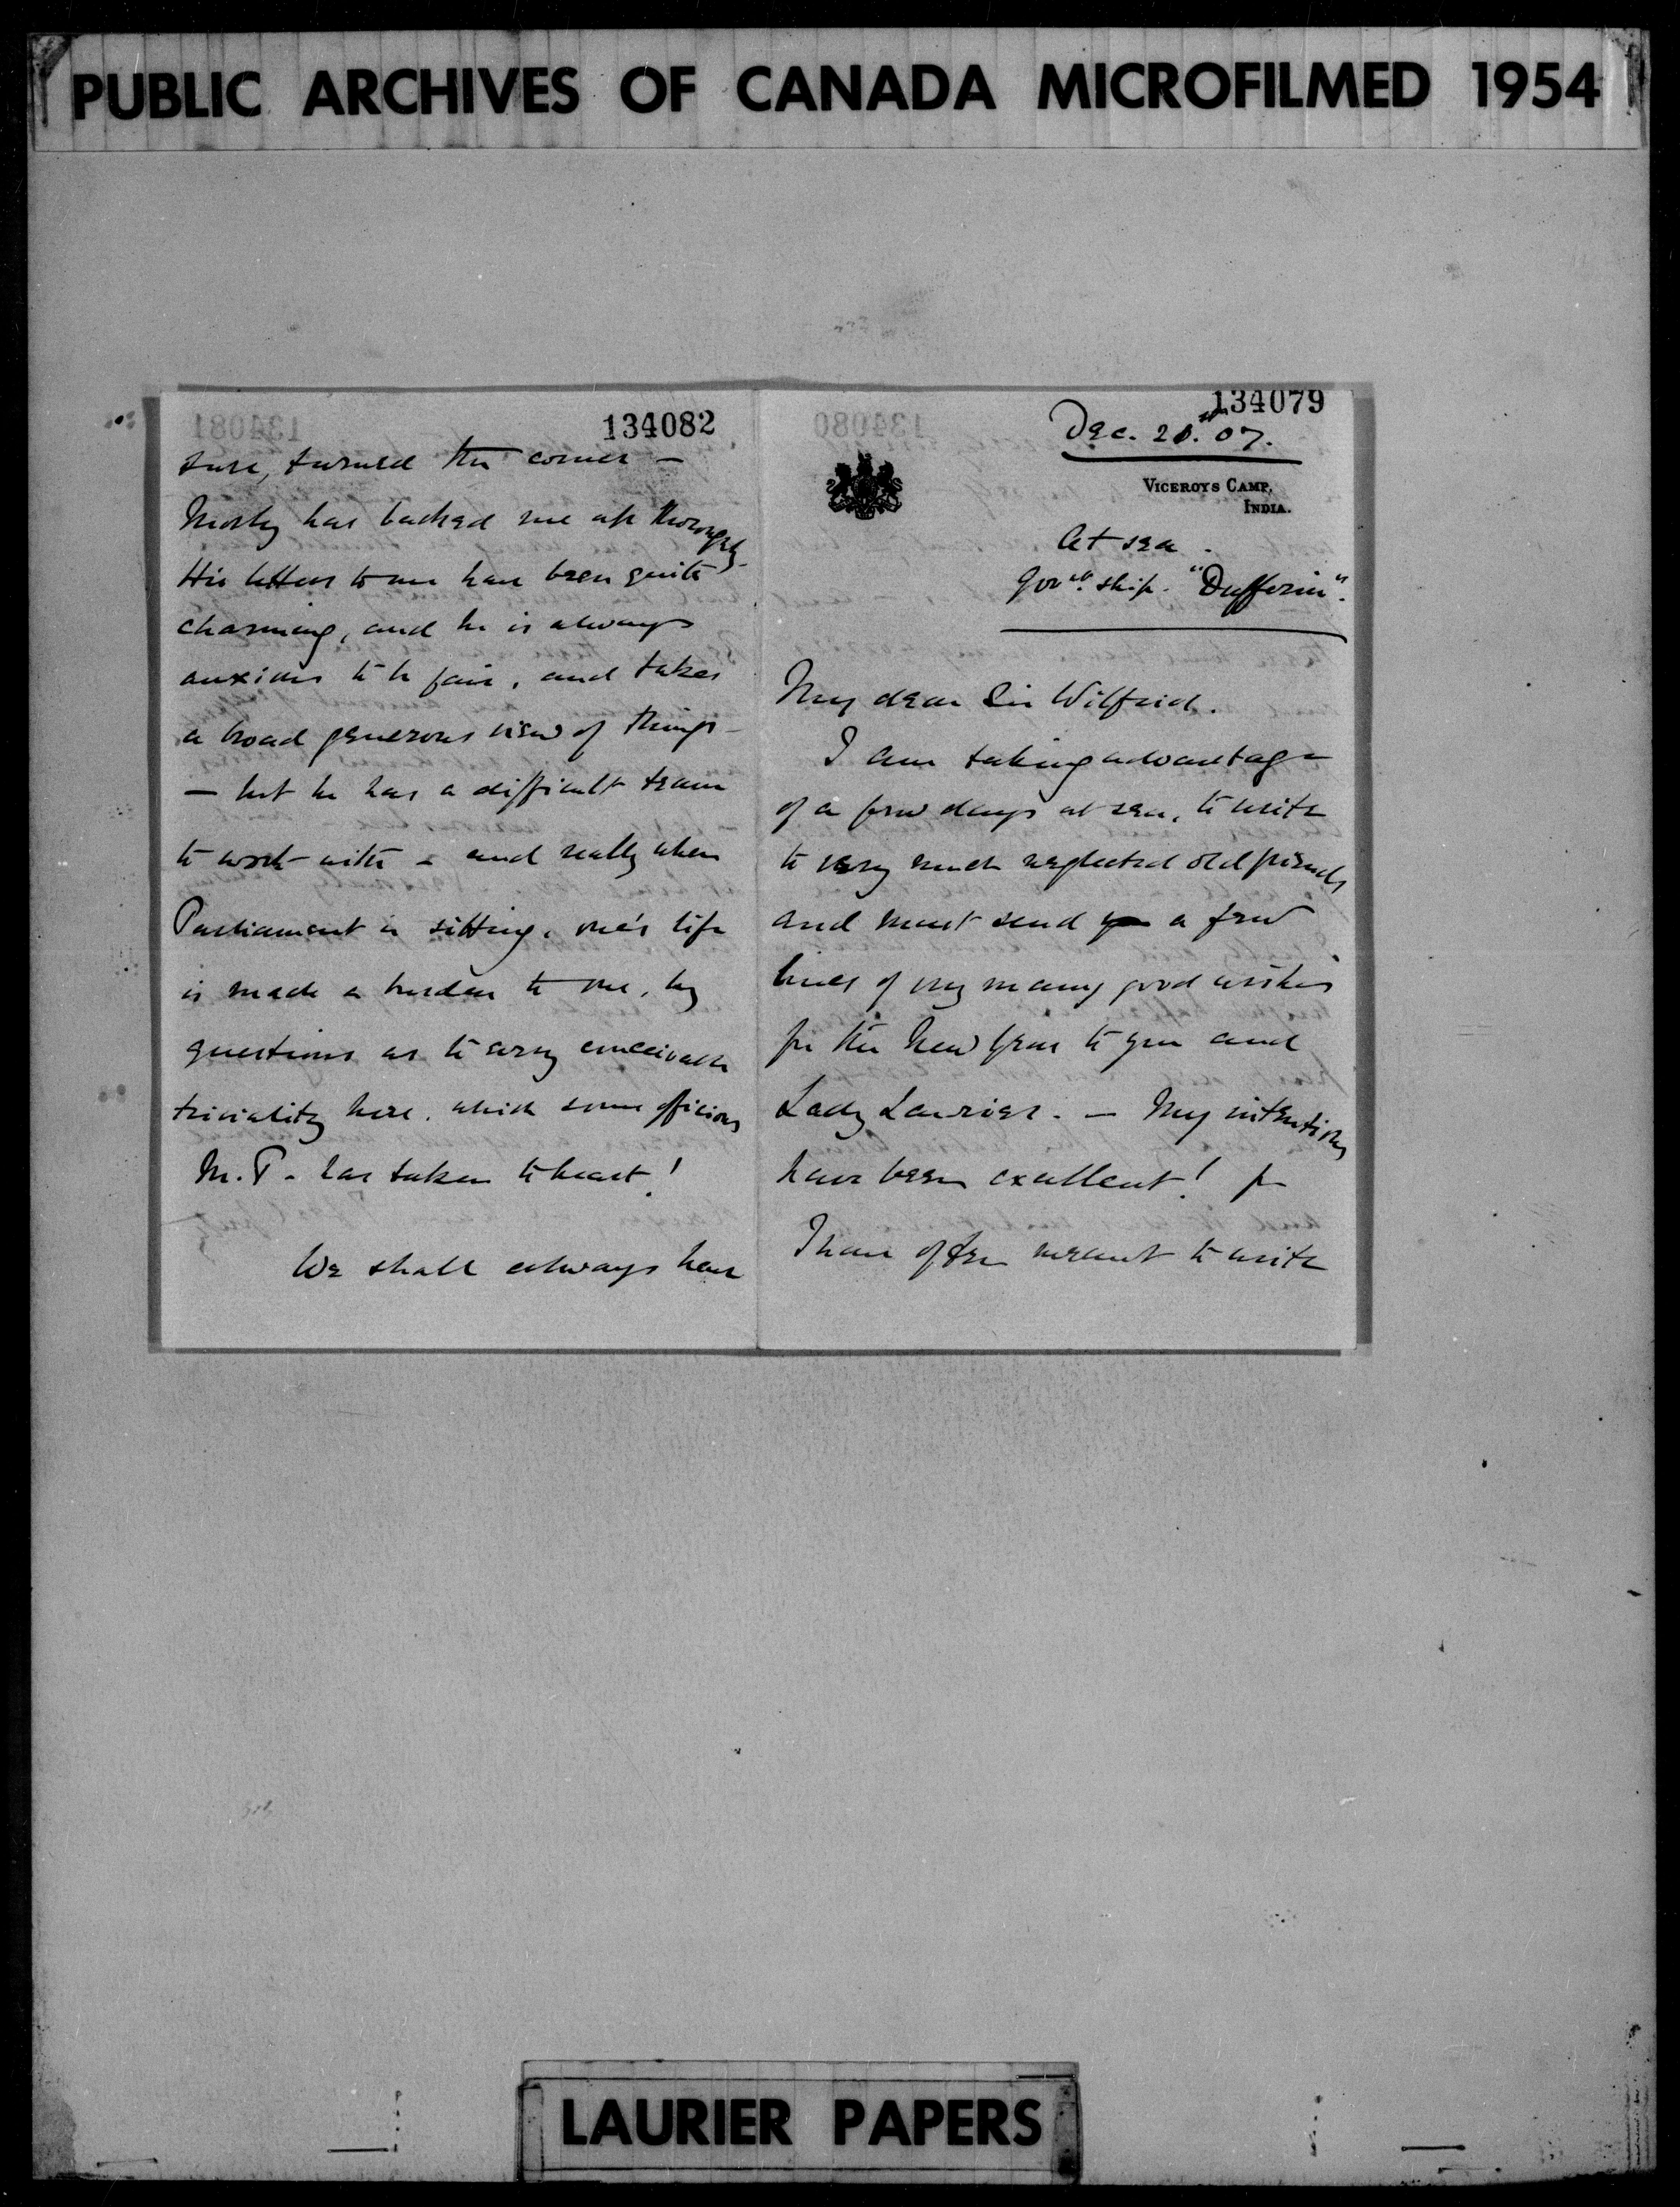 PUBLIC ARCHIVES OF CANADA MICROFILMED 1954
134082
sure, turned the corner —
Morley has backed me up thoroughly.
His letters to me have been quite
charming, and he is always
anxious to be fair, and takes
a broad generous view of things —
— but he has a difficult team
to work with — and really when
Parliament is sitting, one's life
is made a burden to one, by
questions as to every conceivable
triviality here, which some officious
M.P. has taken to heart!
We shall always have
134079
Dec. 21st. 07.
VICEROYS CAMP,
INDIA.
At sea.
Govt. ship. "Dufferin".
My dear Sir Wilfrid.
I am taking advantage
of a few days at sea, to write
to very much neglected old friends
and must send a few
lines of my many good wishes
for the New Year to you and
Lady Laurier. — My intentions
have been excellent! for
I have often meant to write
LAURIER PAPERS